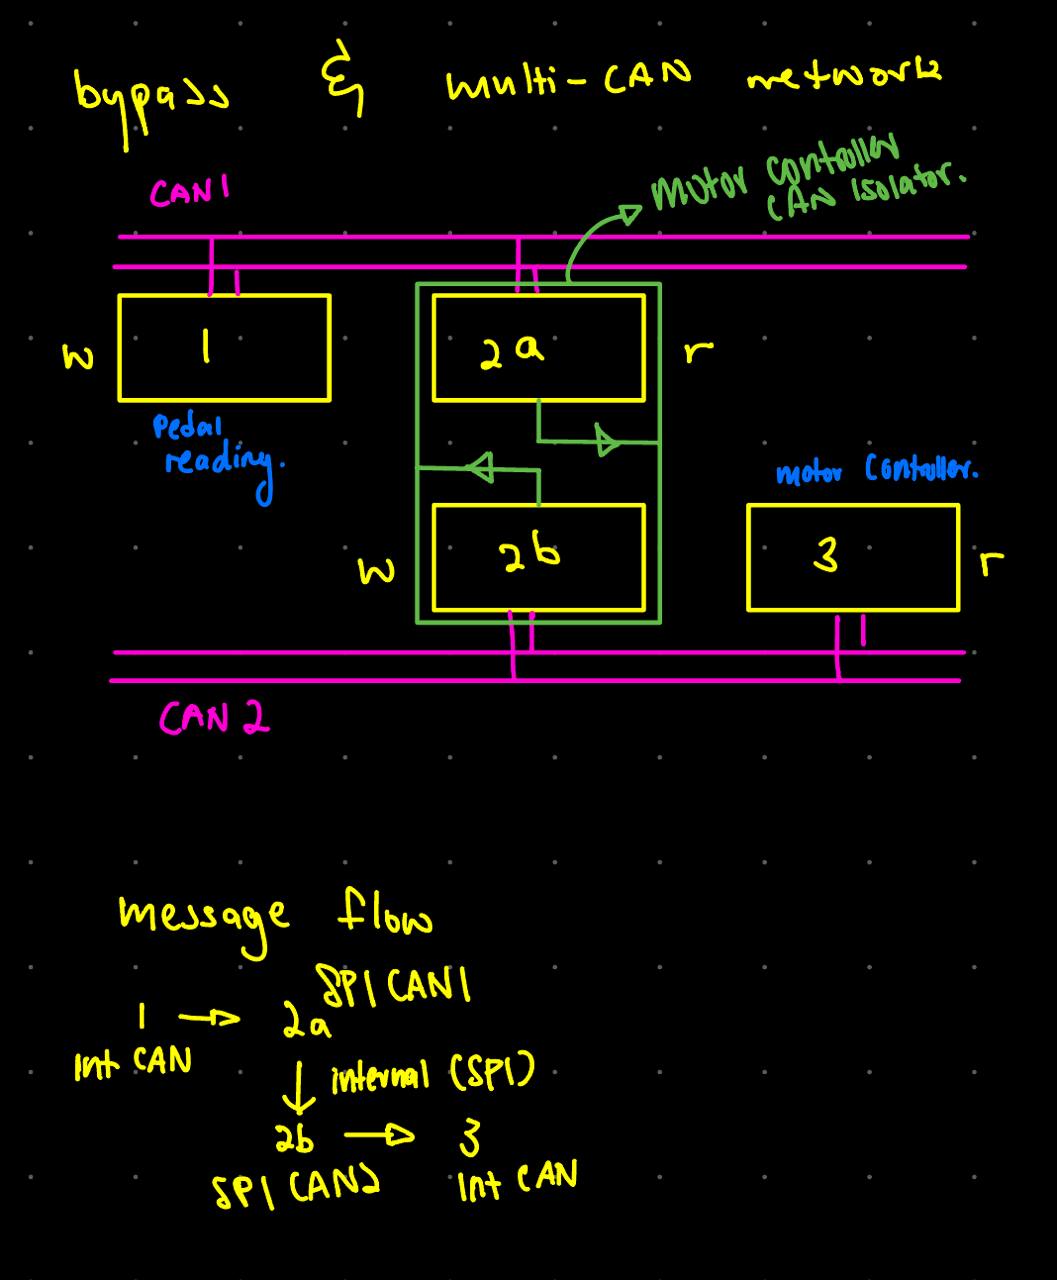 bypass & multi-CAN network
CAN1
Motor Controller
CAN Isolator.
w
1
2a
r
Pedal
reading.
motor Controller.
w
2b
3
r
CAN 2
message flow
1 → 2a SPI CAN1
Int CAN
↓ internal (SPI)
2b → 3
SPI CAN2
Int CAN